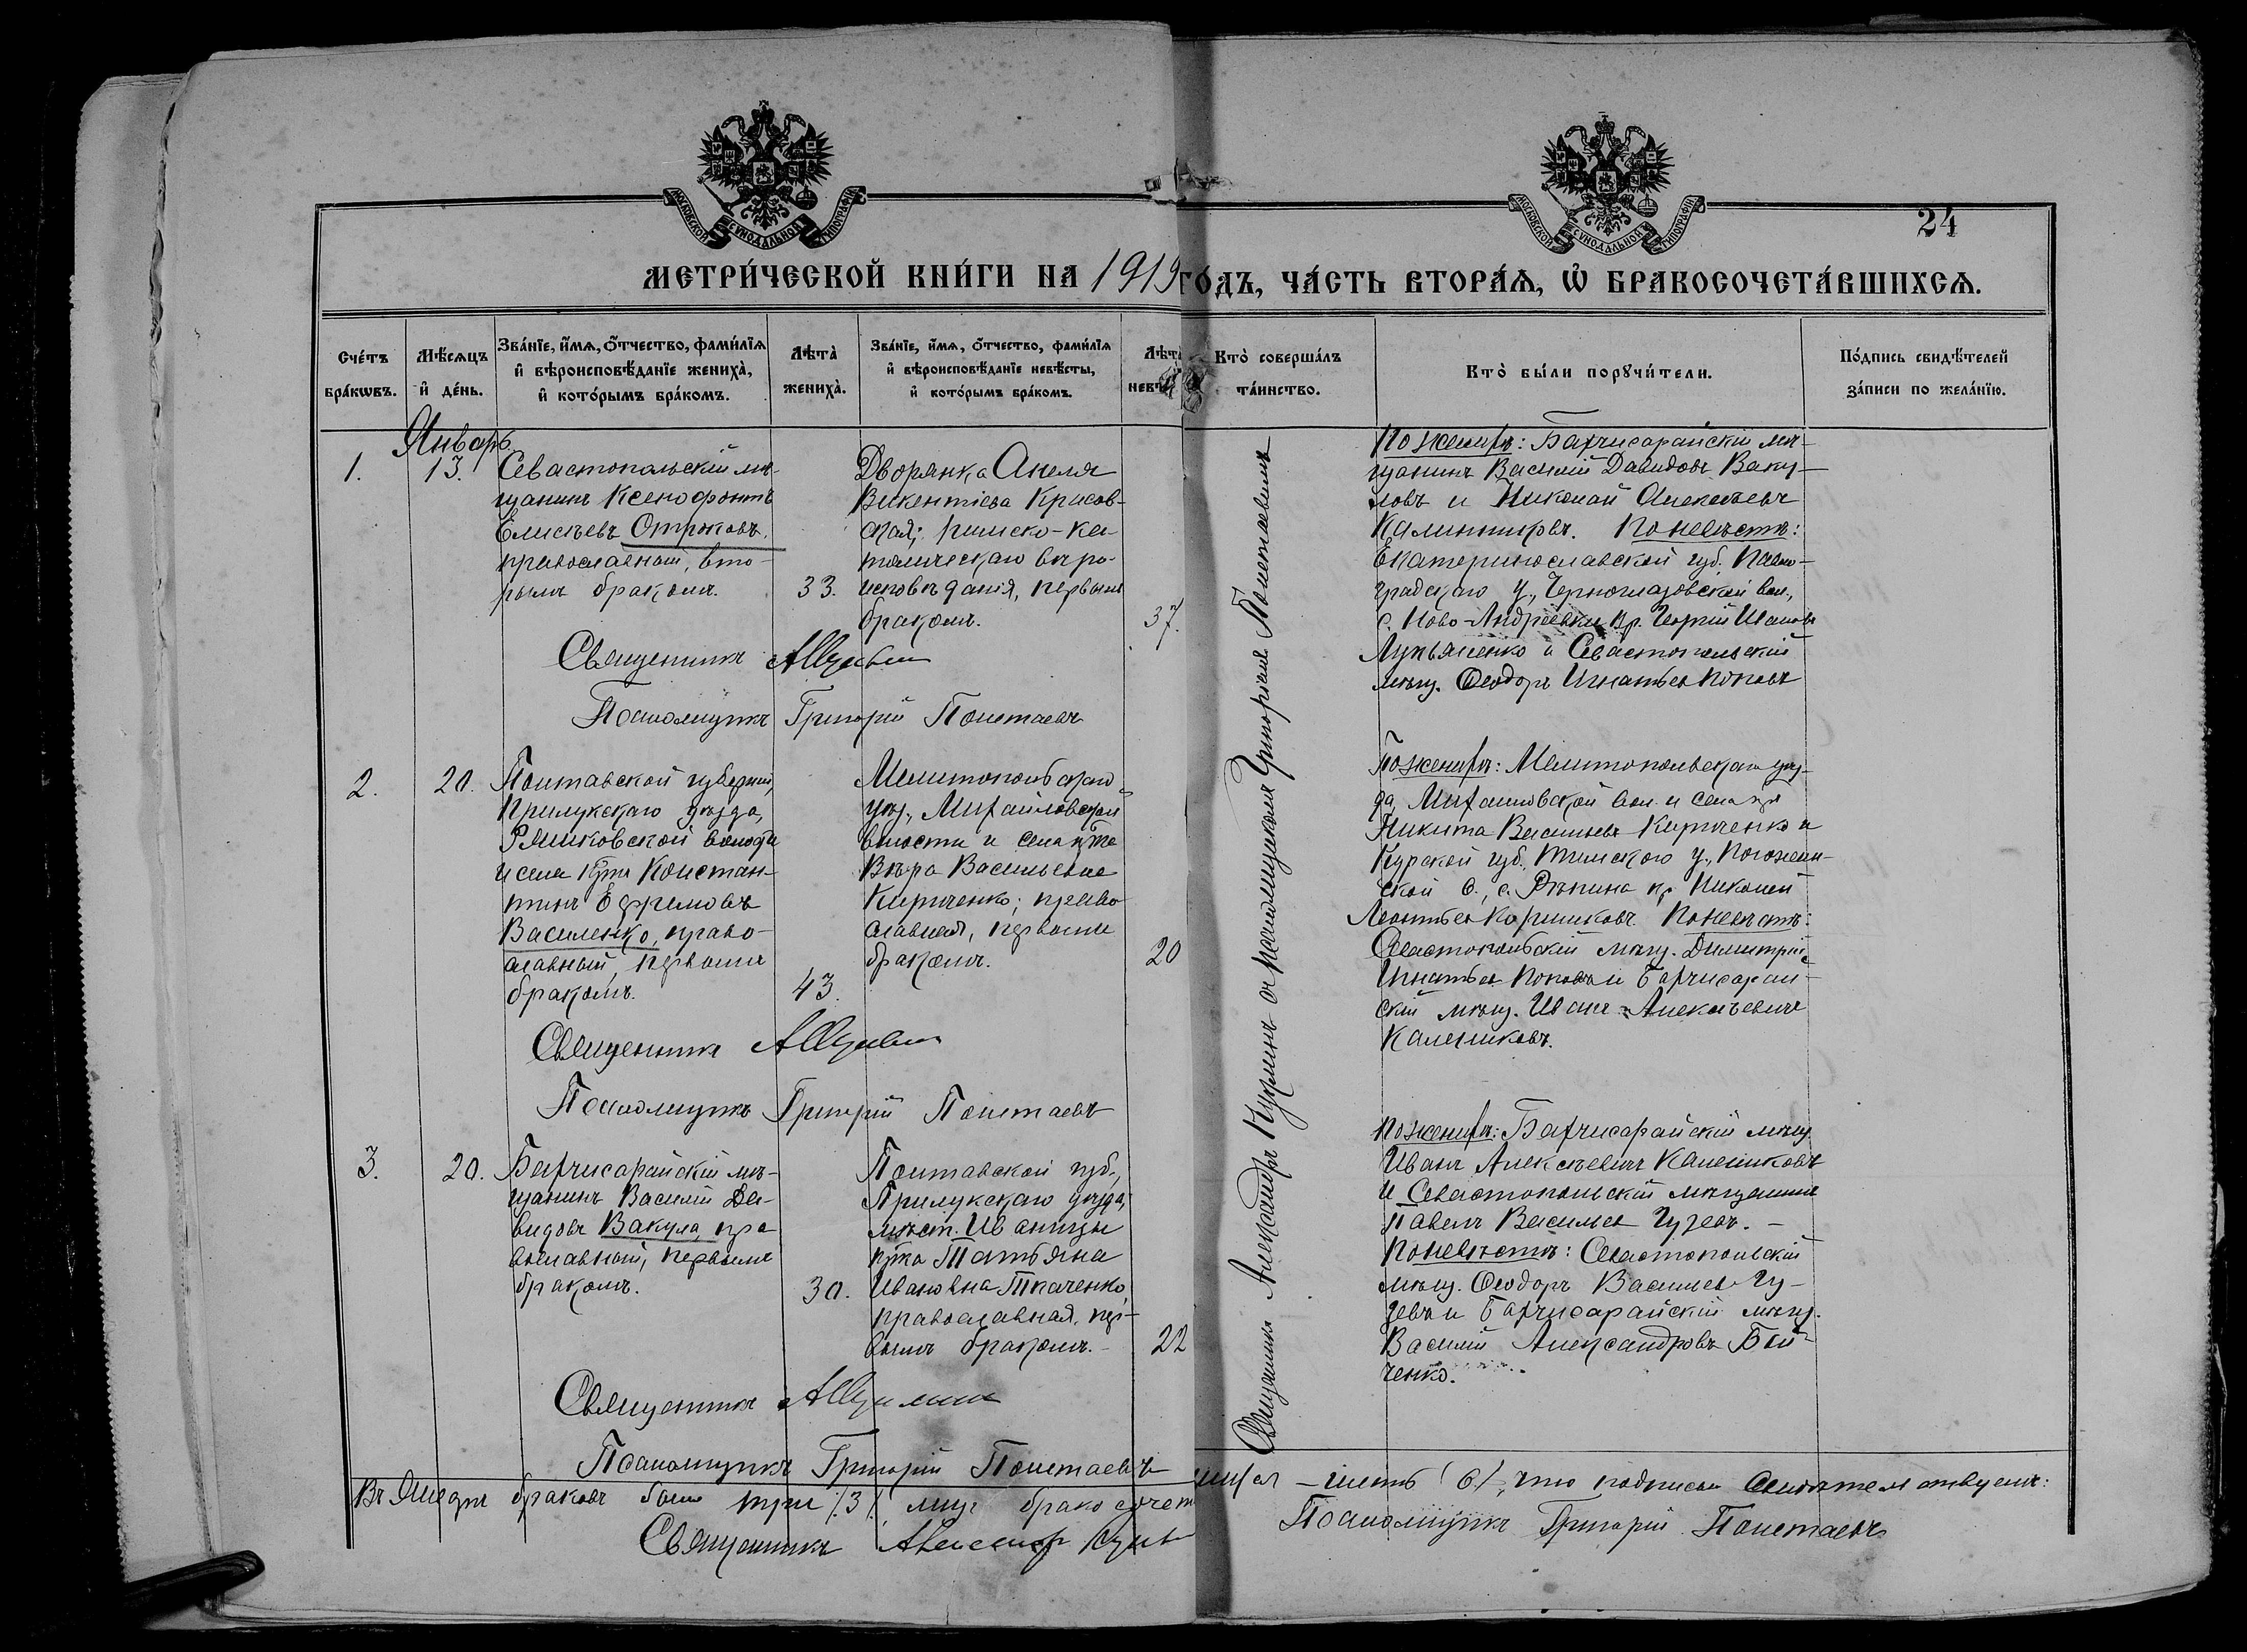 МОСКОВСКОЙ СѴНОДАЛЬНОЙ ТИПОГРАФІИ
МОСКОВСКОЙ СѴНОДАЛЬНОЙ ТИПОГРАФІИ
24
МЕТРИ́ЧЕСКОЙ КНИ́ГИ НА 1919 ГО́ДЪ, ЧА́СТЬ ВТОРА́Ѧ, Ѡ҆ БРАКОСОЧЕТА́ВШИХСѦ.
Сче́тъ бра́кѡвъ.
Мѣ́сѧцъ и҆ де́нь.
Зва́нїе, и҆́мѧ, ѻ҆́тчество, фами́лїѧ и҆ вѣроисповѣ́данїе жениха̀, и҆ кото́рымъ бра́комъ.
Лѣта̀ жениха̀.
Зва́нїе, и҆́мѧ, ѻ҆́тчество, фами́лїѧ и҆ вѣроисповѣ́данїе невѣ́сты, и҆ кото́рымъ бра́комъ.
Лѣта̀
Кто̀ соверша́лъ та́инство.
Кто̀ бы́ли порꙋчи́тели.
По́дпись свидѣ́телей за́писи по жела́нїю.
Январь
1.
13.
Севастопольскій мѣ-
щанинъ Ксенофонтъ
Елисѣевъ Отроковъ,
православный, вто-
рымъ бракомъ.
33.
Дворянка Анеля
Викентіева Красов-
ская; римско-ка-
толическаго вѣро-
исповѣданія, первымъ
бракомъ.
37.
Священникъ Александръ Кузьминъ съ псаломщикомъ Григоріемъ Полетаевымъ
По женихѣ: Бахчисарайскій мѣ-
щанинъ Василій Давидовъ Ваку-
ловъ и Николай Алексѣевъ
Калинниковъ. По невѣстѣ:
Екатеринославской губ. Павло-
градскаго у., Черноглазовской вол.,
с. Ново-Андреевки кр. Георгій Ивановъ
Лукьяненко и Севастопольскій
мѣщ. Ѳеодоръ Игнатьев Поповъ
Священникъ
Псаломщикъ Григорій Полетаевъ
2.
20.
Полтавской губерніи,
Прилукскаго уѣзда,
волости
и села кр-нъ Констан-
тинъ Ефремовъ
Василенко, право-
славный, первымъ
бракомъ.
43.
Мелитопольскаго
уѣз., Михайловской
волости и села кр-ка
Вѣра Васильевна
Кириченко; право-
славная, первымъ
бракомъ.
20
По женихѣ: Мелитопольскаго уѣз-
да, Михайловской вол. и села кр
Никита Васильевъ Кириченко и
Курской губ. Тимскаго у., Погожен-
ской в., с. Рѣпина кр. Николай
Леонтьев Коришковъ. По невѣстѣ:
Севастопольскій мѣщ. Димитрій
Игнатьев Поповъ и Бахчисарай-
скій мѣщ. Иванъ Алексѣевичъ
Калениковъ.
Священникъ
Псаломщикъ Григорій Полетаевъ
3.
20.
Бахчисарайскій мѣ-
щанинъ Василій Да-
видовъ Вакула, пра
вославный, первымъ
бракомъ.
30.
Полтавской губ.,
Прилукскаго уѣзда,
мѣст. Иваницы
кр-ка Татьяна
Ивановна Ткаченко,
православная, пер-
вымъ бракомъ.
22
По женихѣ: Бахчисарайскій мѣщ.
Иванъ Алексѣевичъ Калениковъ
и Севастопольскій мѣщанинъ
Павелъ Васильев Гузевъ. –
По невѣстѣ: Севастопольскій
мѣщ. Ѳеодоръ Васильев Гу-
зевъ и Бахчисарайскій мѣщ.
Василій Александровъ Бой-
ченко.
Священникъ
Псаломщикъ Григорій Полетаевъ
Въ Январѣ браковъ было три /3/, лицъ брако сочет шихся – шесть /6/, что подписью свидѣтельствуемъ:
Священникъ Александръ
Псаломщикъ Григорій Полетаевъ